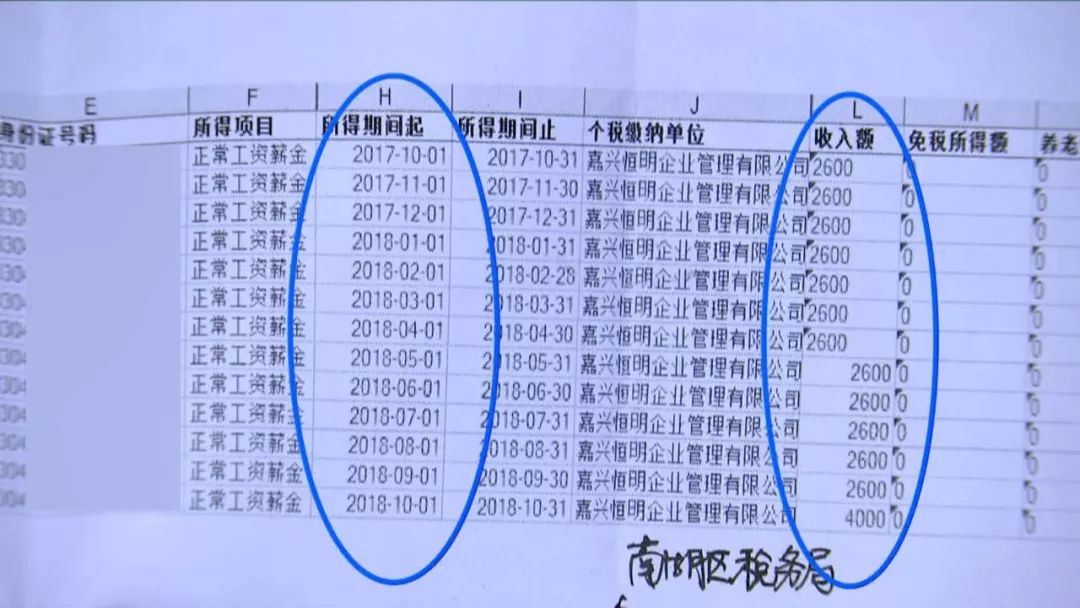 E F H I J L M
身份证号码 所得项目 所得期间起 所得期间止 个税缴纳单位 收入额 免税所得额 养老
330 正常工资薪金 2017-10-01 2017-10-31 嘉兴恒明企业管理有限公司 2600 0 0
330 正常工资薪金 2017-11-01 2017-11-30 嘉兴恒明企业管理有限公司 2600 0 0
330 正常工资薪金 2017-12-01 2017-12-31 嘉兴恒明企业管理有限公司 2600 0 0
330 正常工资薪金 2018-01-01 2018-01-31 嘉兴恒明企业管理有限公司 2600 0 0
330 正常工资薪金 2018-02-01 2018-02-28 嘉兴恒明企业管理有限公司 2600 0 0
3304 正常工资薪金 2018-03-01 2018-03-31 嘉兴恒明企业管理有限公司 2600 0 0
3304 正常工资薪金 2018-04-01 2018-04-30 嘉兴恒明企业管理有限公司 2600 0 0
3304 正常工资薪金 2018-05-01 2018-05-31 嘉兴恒明企业管理有限公司 2600 0 0
3304 正常工资薪金 2018-06-01 2018-06-30 嘉兴恒明企业管理有限公司 2600 0 0
3304 正常工资薪金 2018-07-01 2018-07-31 嘉兴恒明企业管理有限公司 2600 0 0
3304 正常工资薪金 2018-08-01 2018-08-31 嘉兴恒明企业管理有限公司 2600 0 0
3304 正常工资薪金 2018-09-01 2018-09-30 嘉兴恒明企业管理有限公司 2600 0 0
3304 正常工资薪金 2018-10-01 2018-10-31 嘉兴恒明企业管理有限公司 4000 0 0
南湖区税务局